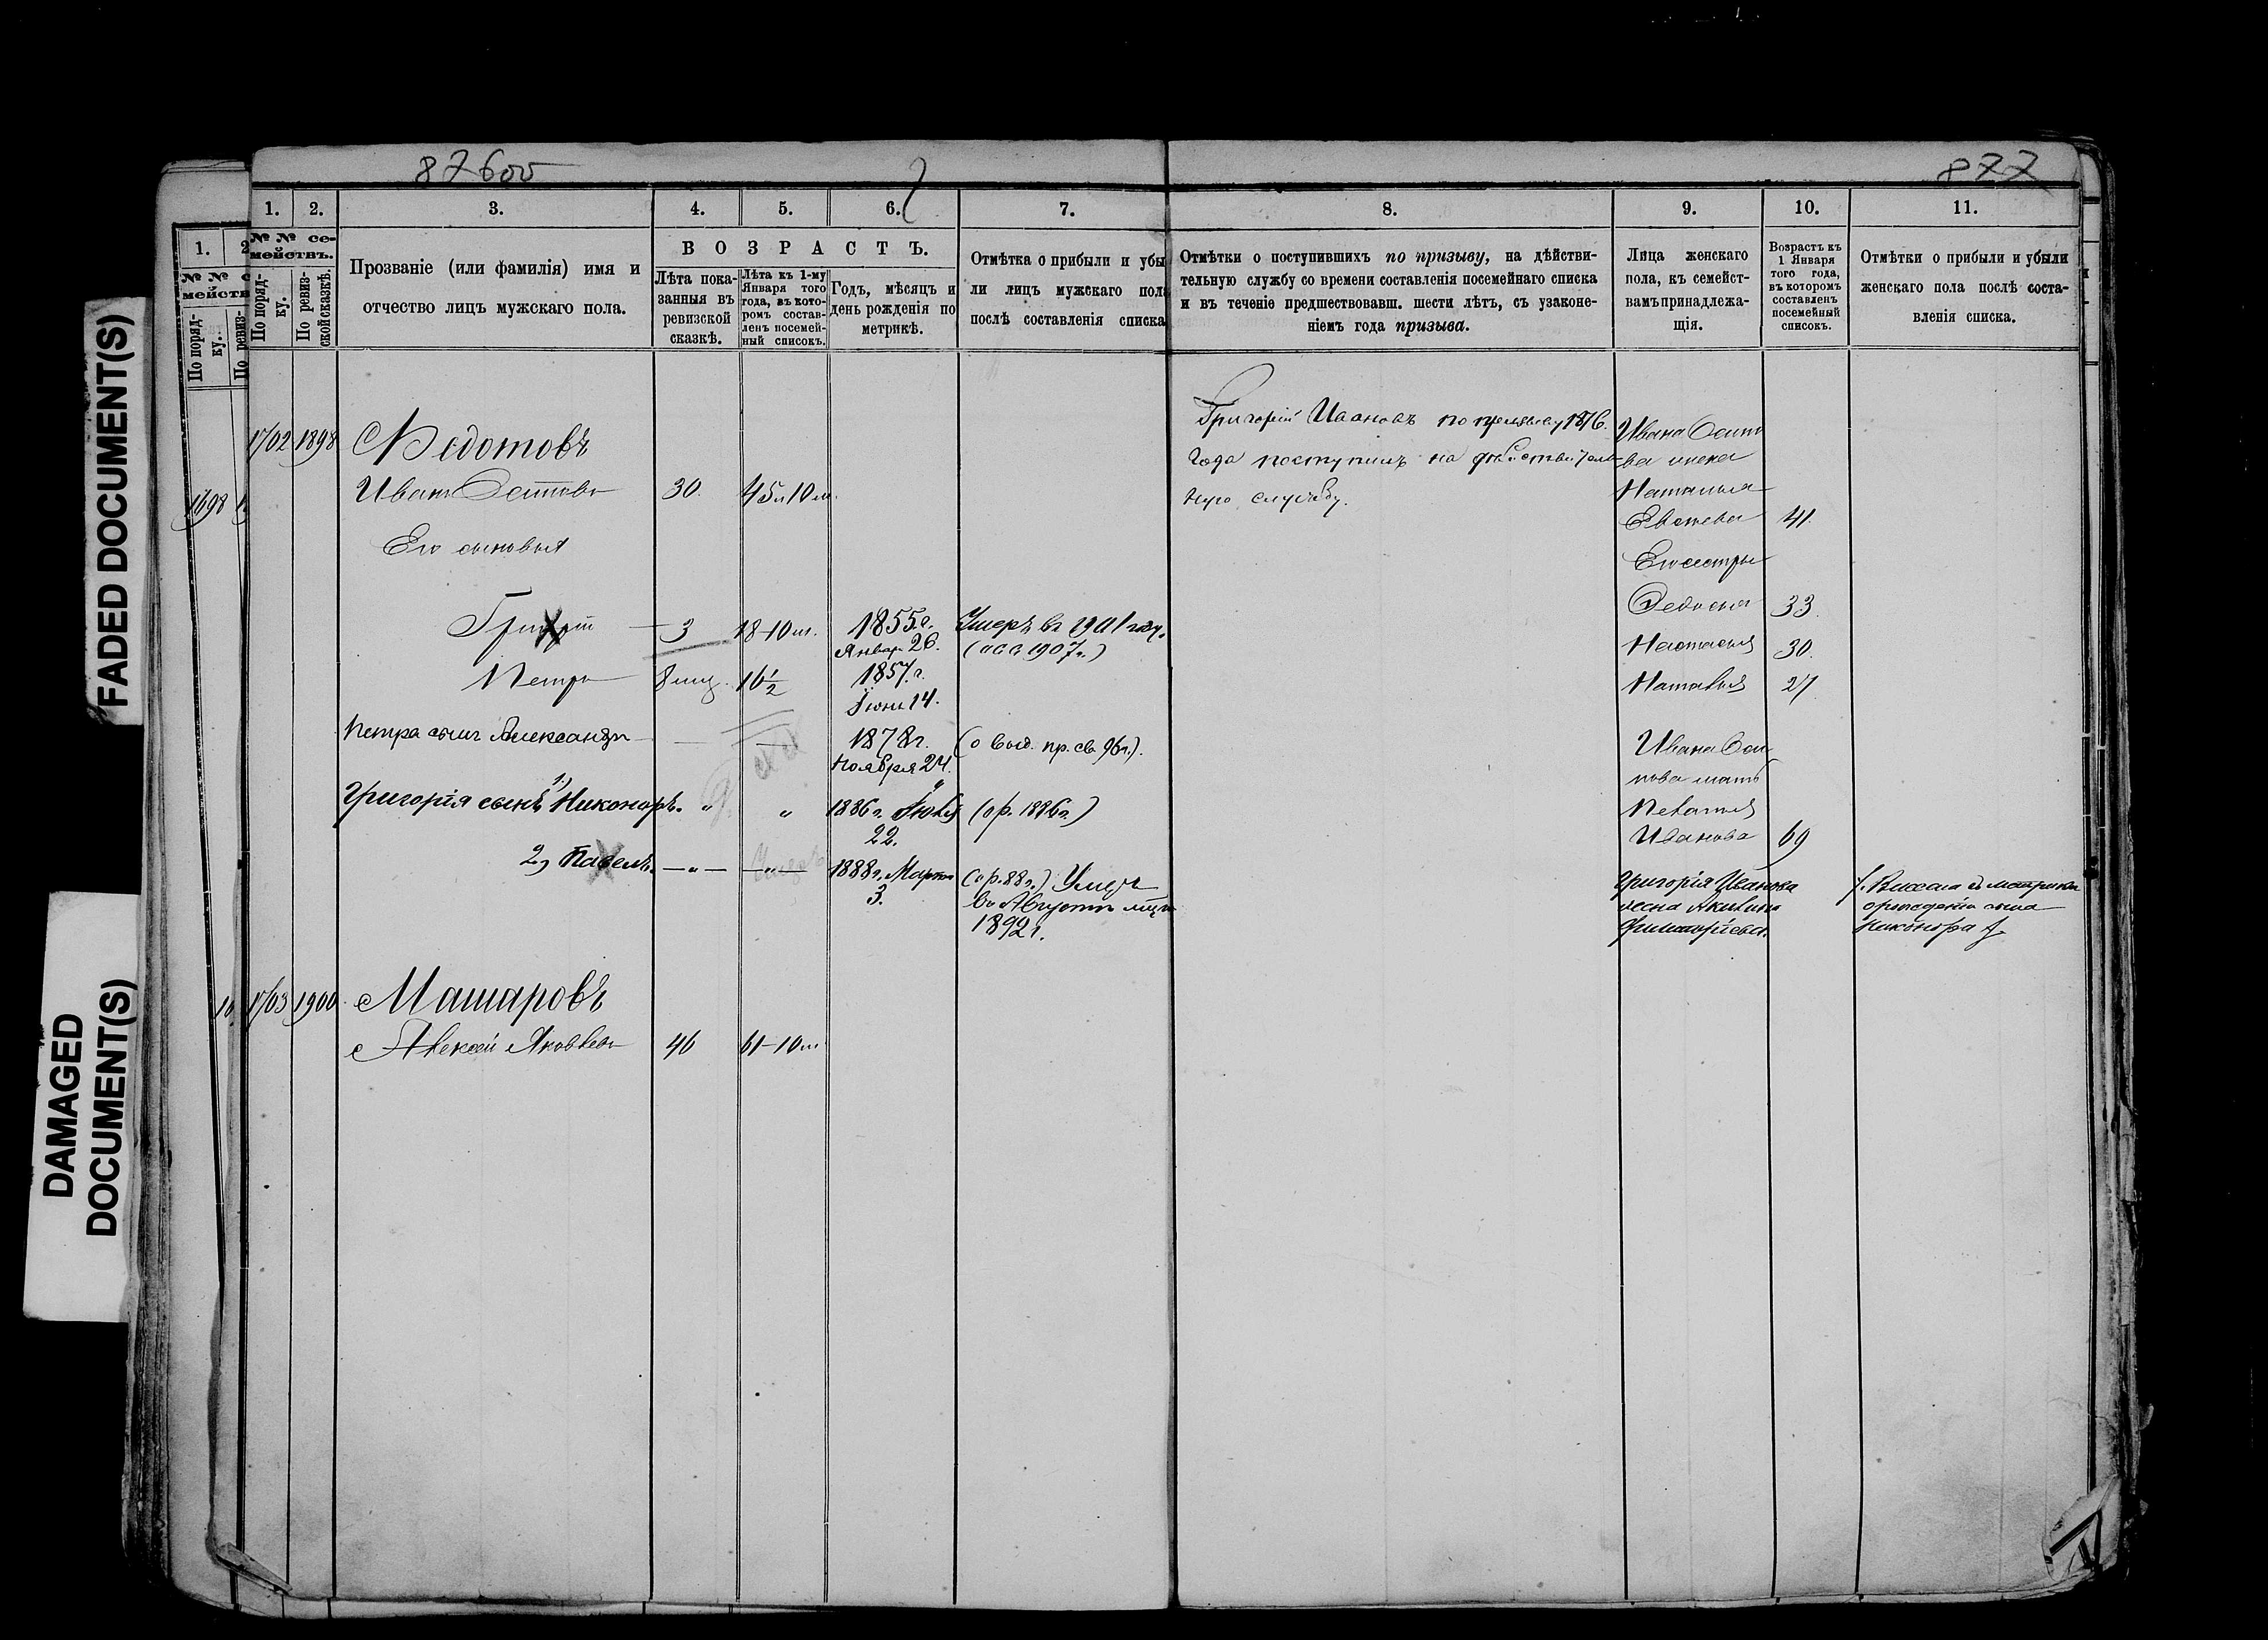 877
1. 2. 3. 4. 5. 6. 7. 8. 9. 10. 11.
№ № се-
мействъ.
По поряд-
ку.
По ревиз-
ской сказкѣ.
Прозваніе (или фамилія) имя и
отчество лицъ мужскаго пола.
ВОЗРАСТЪ.
Лѣта пока-
занныя въ
ревизской
сказкѣ.
Лѣта къ 1-му
Января того
года, въ кото-
ромъ состав-
ленъ посемей-
ный списокъ.
Годъ, мѣсяцъ и
день рожденія по
метрикѣ.
Отмѣтка о прибыли и убы
ли лицъ мужскаго пола
послѣ составленія списка
Отмѣтки о поступившихъ по призыву, на дѣйстви-
тельную службу со времени составленія посемейнаго списка
и въ теченіе предшествовавш. шести лѣтъ, съ узаконе-
ніемъ года призыва.
Лица женскаго
пола, къ семейст-
вамъ принадлежа-
щія.
Возрастъ къ
1 Января
того года,
въ которомъ
составленъ
посемейный
списокъ.
Отмѣтки о прибыли и убыли
женскаго пола послѣ соста-
вленія списка.
1702 1898 Ѳедотовъ
Иванъ 30. 45 л 10 м.
Его сыновья
Григорій 3 18-10 м. 1855 г. Умеръ въ 1901 году.
Январ. 26. 1907 г.)
Петръ 8 мц. 16 1/2 1857 г.
Іюня 14.
Петра сынъ Александръ 1878 г.
Ноября 24.
Григорія сынъ 1) Никоноръ. " " 1886 г. Іюля (о р. 1886 г.)
22.
2) Павелъ. —"— —"— 1888 г. Марта (о р. 88 г.) Умеръ
3. въ Августѣ
1892 г.
Григорій Ивановъ по призыву 1876
года поступилъ на дѣйствитель-
ную службу.
Ивана
ва жена
Наталья
41.
Его сестры
Ѳедосья 33.
Настасья 30.
Наталья 27
Ивана
пова мать
Пелагея
Иванова 69
Григорія Иванова
жена Акилина
Никонора
1703 1900 Машаровъ
Алексѣй Яковлевъ 46 61-10 м.
1698
FADED DOCUMENT(S)
DAMAGED
DOCUMENT(S)